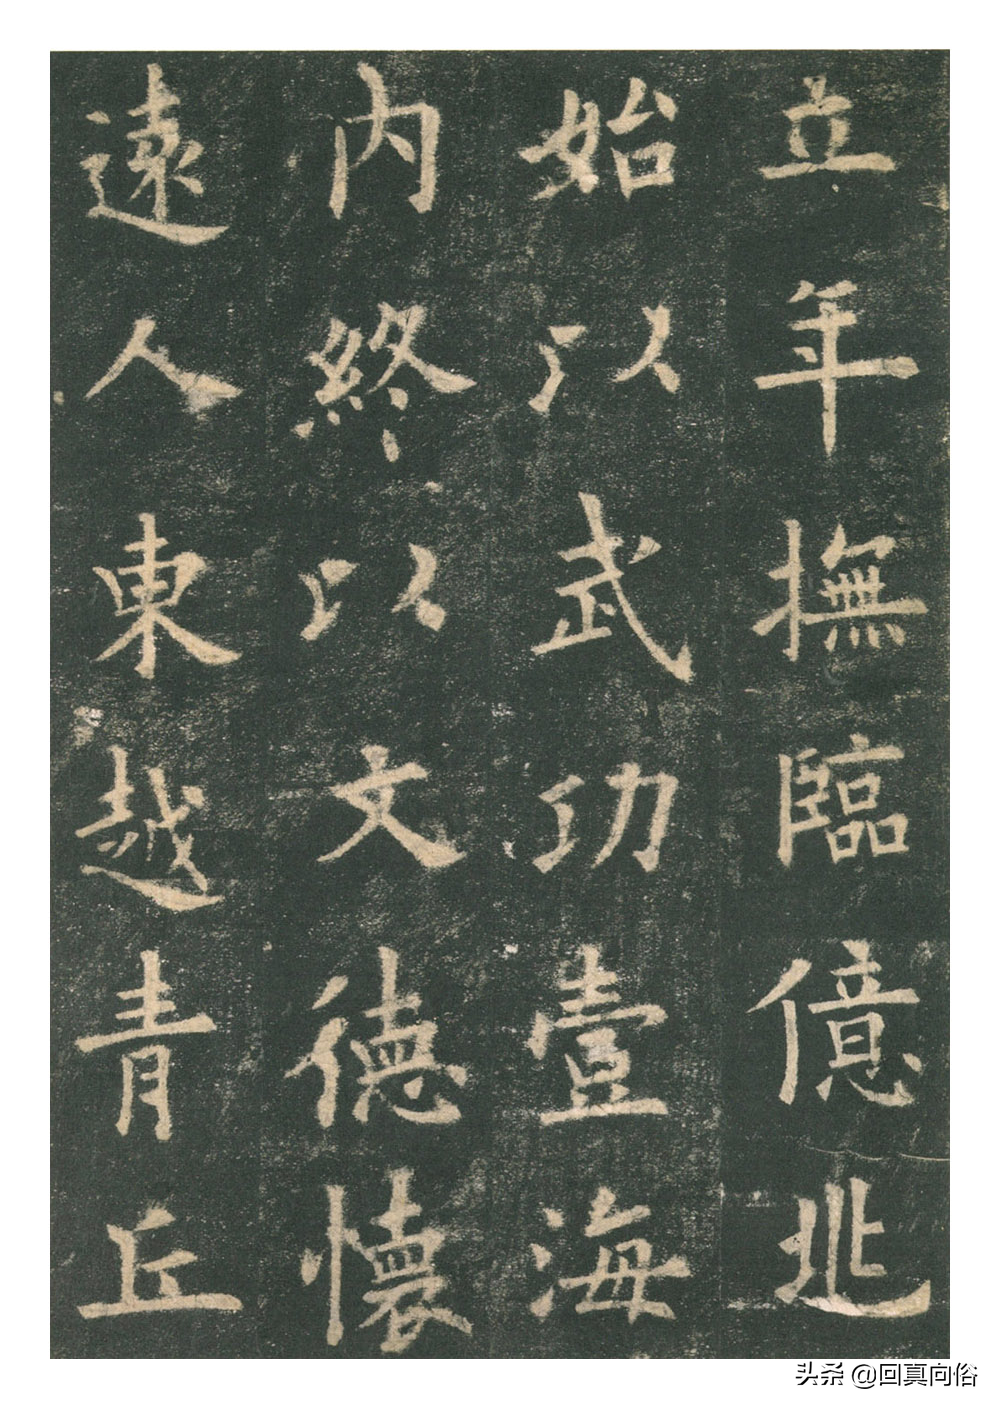 立年撫臨億兆
始以武功壹海
内終以文德懷
遠人東越青丘
头条 @回真向俗